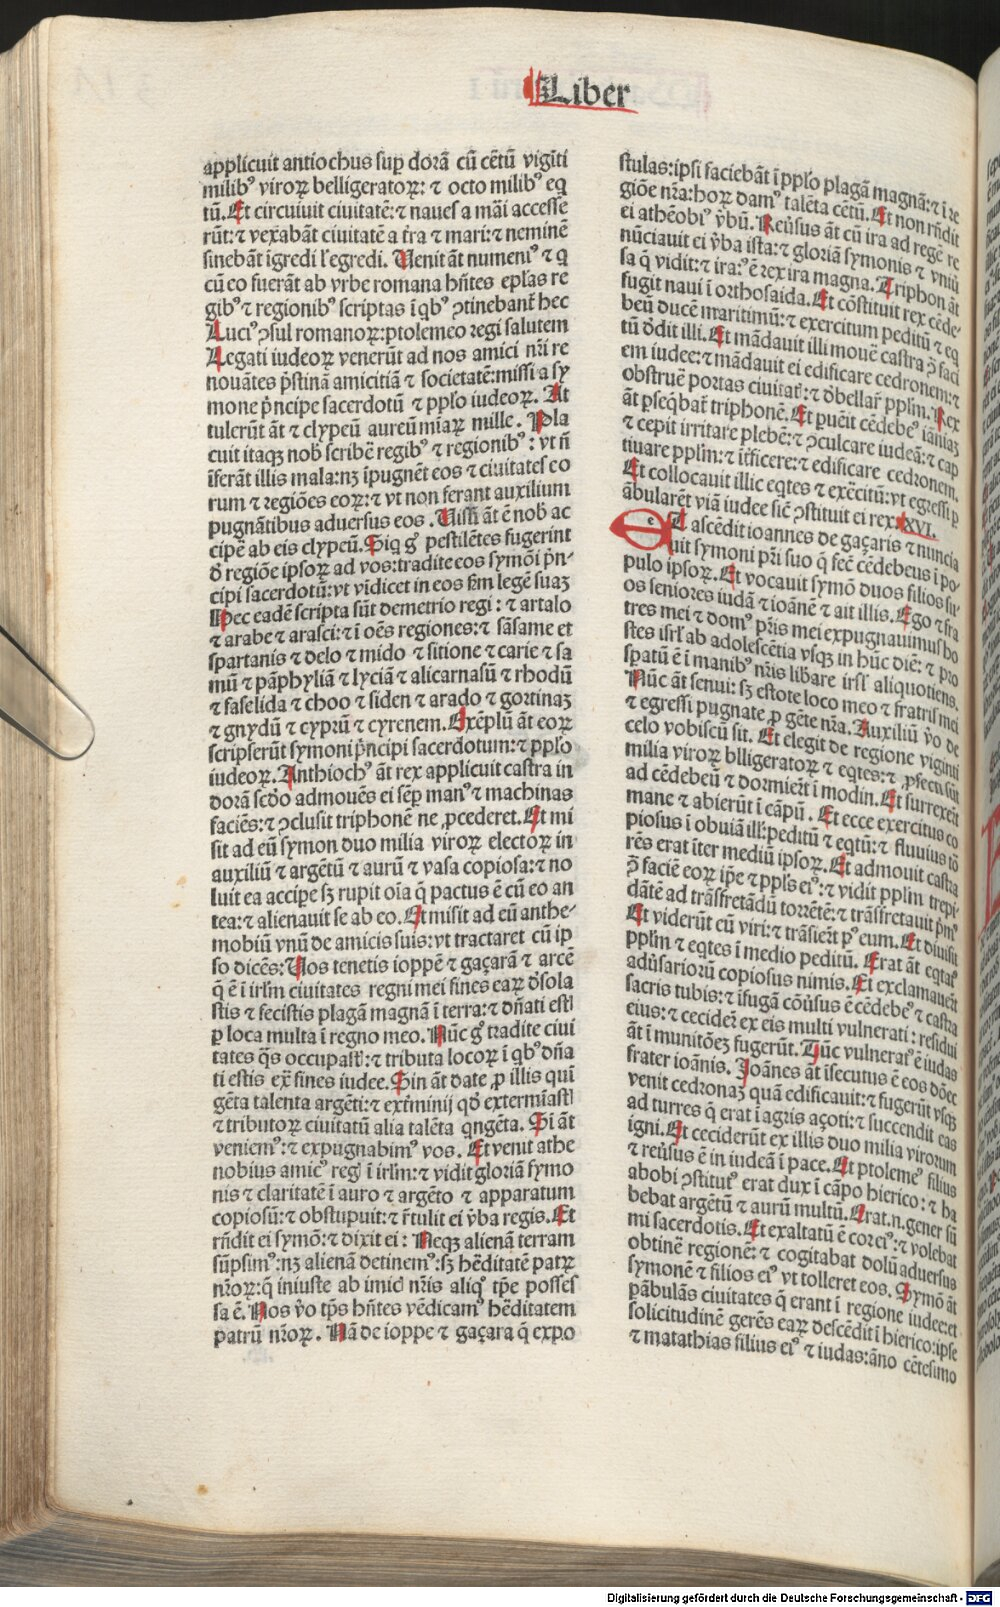 Liber
applicuit antiochus suꝑ dorã cũ cẽtũ vigĩti
milibꝰ viroꝝ belligeratoꝝ: ⁊ octo milibꝰ eq
tũ. Et circuiuit ciuitatẽ: ⁊ naues a mãi accesse
rũt: ⁊ vexabãt ciuitatẽ a t̃ra ⁊ mari: ⁊ neminẽ
sinebãt ĩgredi ł egredi. Uenit ãt numeniꝰ ⁊ q
cũ eo fuerãt ab vrbe romana hñtes ep̃las re
gibꝰ ⁊ regionibꝰ scriptas ĩ qbꝰ ꝯtinebant̃ hec
Luciꝰ ꝯsul romanoꝝ: ptolemeo regi salutem
Legati iudeoꝝ venerũt ad nos amici nr̃i re
nouãtes p̃stinã amicitiã ⁊ societatẽ: missi a sy
mone p̃ncipe sacerdotũ ⁊ pp̃lo iudeoꝝ. At
tulerũt ãt ⁊ clypeũ aureũ mĩaꝝ mille. Pla
cuit itaqꝫ nob̃ scribẽ regibꝰ ⁊ regionibꝰ: vt ñ
ĩferãt illis mala: nꝫ ĩpugnẽt eos ⁊ ciuitates eo
rum ⁊ regiões eoꝝ: ⁊ vt non ferant auxilium
pugnãtibus aduersus eos. Uisũ ãt ẽ nob̃ ac
cipẽ ab eis clypeũ. Siq g̊ pestilẽtes fugerint
d̃ regiõe ipsoꝝ ad vos: tradite eos symõi p̃n-
cipi sacerdotũ: vt vĩdicet in eos s̃m legẽ suaꝫ
Hec eadẽ scripta sũt demetrio regi: ⁊ artalo
⁊ arabe ⁊ arasci: ⁊ ĩ oẽs regiones: ⁊ sãsame et
spartanis ⁊ delo ⁊ mido ⁊ sitione ⁊ carie ⁊ sa
mũ ⁊ pãphyliã ⁊ lyciã ⁊ alicarnasũ ⁊ rhodũ
⁊ faselida ⁊ choo ⁊ siden ⁊ arado ⁊ gortinaꝫ
⁊ gnydũ ⁊ cyprũ ⁊ cyrenem. Exẽplũ ãt eoꝝ
scripserũt symoni p̃ncipi sacerdotum: ⁊ pp̃lo
iudeoꝝ. Anthiochꝰ ãt rex applicuit castra in
dorã sc̃do admouẽs ei sẽꝑ manꝰ ⁊ machinas
faciẽs: ⁊ ꝯclusit triphonẽ ne ꝓcederet. Et mi
sit ad eũ symon duo milia viroꝝ electoꝝ in
auxiliũ ⁊ argẽtũ ⁊ aurũ ⁊ vasa copiosa: ⁊ no
luit ea accipe sꝫ rupit oĩa q̃ pactus ẽ cũ eo an
tea: ⁊ alienauit se ab eo. Et misit ad eũ anthe-
mobiũ vnũ de amicis suis: vt tractaret cũ ip
so dicẽs: Uos tenetis ioppẽ ⁊ gaçarã ⁊ arcẽ
q̃ ẽ ĩ irlm̃ ciuitates regni mei fines eaꝝ d̃sola
stis ⁊ fecistis plagã magnã ĩ terra: ⁊ dñati estĩ
ꝑ loca multa ĩ regno meo. Nũc g̊ tradite ciui
tates q̃s occupast̃: ⁊ tributa locoꝝ ĩ qbꝰ dña
ti estis ex̃ fines iudee. Sin ãt date ꝓ illis quĩ
gẽta talenta argẽti: ⁊ ext̃minij qd̃ extermĩastĩ
⁊ tributoꝝ ciuitatũ alia talẽta qngẽta. Si ãt
veniemꝰ: ⁊ expugnabimꝰ vos. Et venit athe
nobius amicꝰ reg̃ ĩ irlm̃: ⁊ vidit gloriã symo
nis ⁊ claritatẽ ĩ auro ⁊ argẽto ⁊ apparatum
copiosũ: ⁊ obstupuit: ⁊ r̃tulit ei ṽba regis. Et
rñdit ei symõ: ⁊ dixit ei: Neqꝫ alienã terram
sũpsimꝰ: nꝫ alienã detinemꝰ: sꝫ hẽditatẽ patꝝ
nr̃oꝝ: q̃ iniuste ab imic̃ nr̃is aliqꝰ tp̃e posses
sa ẽ. Nos v̊o tp̃s hñtes vẽdicamꝰ hẽditatem
patrũ nr̃oꝝ. Nã de ioppe ⁊ gaçara q̃ expo
stulas: ipsi faciebãt ĩ pp̃lo plagã magnã: ⁊ ĩ re
giõe nr̃a: hoꝝ damꝰ talẽta cẽtũ. Et non rñdit
ei athẽobiꝰ ṽbũ. Reu̇sus ãt cũ ira ad regẽ re
nũciauit ei ṽba ista: ⁊ gloriã symonis ⁊ vniũ
sa q̃ vidit: ⁊ iraꝰ ẽ rex ira magna. Triphon ãt
fugit naui ĩ orthosaida. Et cõstituit rex cẽde-
beũ ducẽ maritimũ: ⁊ exercitum peditũ ⁊ eq
tũ d̃dit illi. Et mãdauit illi mouẽ castra ꝓ̃ faci
em iudee: ⁊ mãdauit ei edificare cedronem: ⁊
obstruẽ portas ciuitat̃: ⁊ d̃bellar̃ pplm̃. Rex
ãt ꝑseq̃bat̃ triphonẽ. Et ꝑuẽit cẽdebeꝰ iãniaꝫ
⁊ cepit irritare plebẽ: ⁊ ꝯculcare iudeã: ⁊ cap
tiuare pplm̃: ⁊ ĩt̃ficere: ⁊ edificare cedronem.
Et collocauit illic eqtes ⁊ exẽcitũ: vt egressi ꝑ
ãbularẽt viã iudee sic̃ ꝯstituit ei rex. XVI.
Et ascẽdit ioannes de gaçaris ⁊ nuncia
uit symoni pr̃i suo q̃ fec̃ cẽdebeus ĩ po-
pulo ipsoꝝ. Et vocauit symõ duos filios su-
os seniores iudã ⁊ ioãnẽ ⁊ ait illis. Ego ⁊ fra
tres mei ⁊ domꝰ pr̃is mei expugnauimus ho
stes isrl̃ ab adolescẽtia vsqꝫ in hũc diẽ: ⁊ pro
spatũ ẽ ĩ manibꝰ nr̃is libare irsl̃ aliquotiens.
Nũc ãt senui: sꝫ estote loco meo ⁊ fratris mei
⁊ egressi pugnate ꝓ gẽte nr̃a. Auxiliũ v̊o de
celo vobiscũ sit. Et elegit de regione viginti
milia viroꝝ blligeratoꝝ ⁊ eqtes: ⁊ ꝓfecti sũt
ad cẽdebeũ ⁊ dormiert̃ ĩ modin. Et surrexer̃t
mane ⁊ abierũt ĩ cãpũ. Et ecce exercitus co
piosus ĩ obuiã ill̃: peditũ ⁊ eqtũ: ⁊ fluuius to
rẽs erat ĩter mediũ ipsoꝝ. Et admouit castra
ꝓ̃ faciẽ eoꝝ ip̃e ⁊ ppls̃ eiꝰ: ⁊ vidit pplm̃ trepi-
dãtẽ ad trãsfretãdũ torrẽtẽ: ⁊ trãsfretauit p̃mꝰ
Et viderũt eũ viri: ⁊ trãsier̃t pꝰ eum. Et diuisit
pplm̃ ⁊ eqtes ĩ medio peditũ. Erat ãt eqtatꝰ
adu̇sarioꝝ copiosus nimis. Et exclamauer̃t
sacris tubis: ⁊ ĩ fugã cõu̇sus ẽ cẽdebeꝰ ⁊ castra
eius: ⁊ cecider̃ ex eis multi vulnerati: residui
ãt ĩ munitõeꝫ fugerũt. Tũc vulneratꝰ ẽ iudas
frater ioãnis. Ioãnes ãt ĩsecutus ẽ eos dõec
venit cedronaꝫ quã edificauit: ⁊ fugerũt vsqꝫ
ad turres q̃ erat ĩ agris açoti: ⁊ succendit eas
igni. Et ceciderũt ex illis duo milia virorum
⁊ reu̇sus ẽ in iudeã ĩ pace. Et ptolemeꝰ filius
abobi ꝯstitutꝰ erat dux ĩ cãpo hierico: ⁊ ha
bebat argẽtũ ⁊ aurũ multũ. Erat .n. gener sũ
mi sacerdotis. Et exaltatũ ẽ cor eiꝰ: ⁊ volebat
obtinẽ regionẽ: ⁊ cogitabat dolũ aduersus
symonẽ ⁊ filios eiꝰ vt tolleret eos. Symõ ãt
pãbulãs ciuitates q̃ erant ĩ regione iudee: et
solicitudinẽ gerẽs eaꝝ descẽdit ĩ hierico: ipse
⁊ matathias filius eiꝰ ⁊ iudas: ãno cẽtesimo
Digitalisierung gefördert durch die Deutsche Forschungsgemeinschaft - DFG